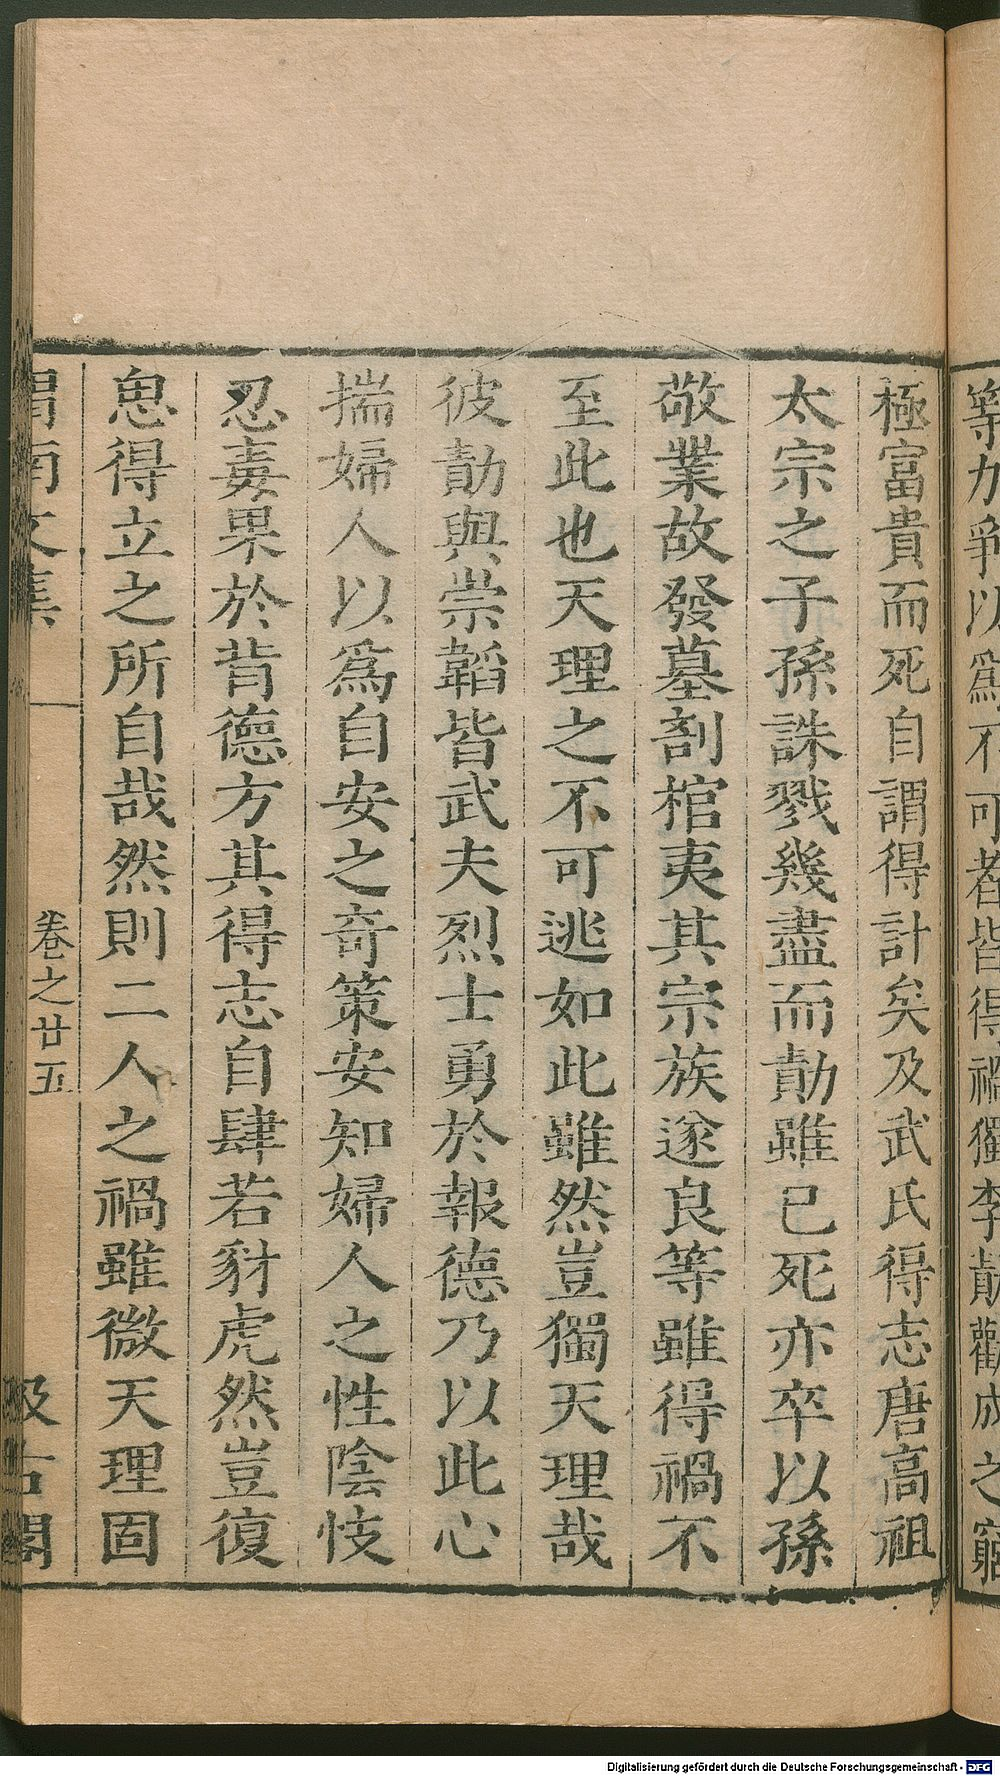 等力爭以爲不可者皆得禍獨李勣勸成之窮
極富貴而死自謂得計矣及武氏得志唐高祖
太宗之子孫誅戮幾盡而勣雖已死亦卒以孫
敬業故發墓剖棺夷其宗族遂良等雖得禍不
至此也天理之不可逃如此雖然豈獨天理哉
彼勣與崇韜皆武夫烈士勇於報德乃以此心
揣婦人以爲自安之奇策安知婦人之性陰忮
忍毒果於背德方其得志自肆若豺虎然豈復
思得立之所自哉然則二人之禍雖微天理固
渭南文集 卷之廿五 汲古閣
Digitalisierung gefördert durch die Deutsche Forschungsgemeinschaft - DFG